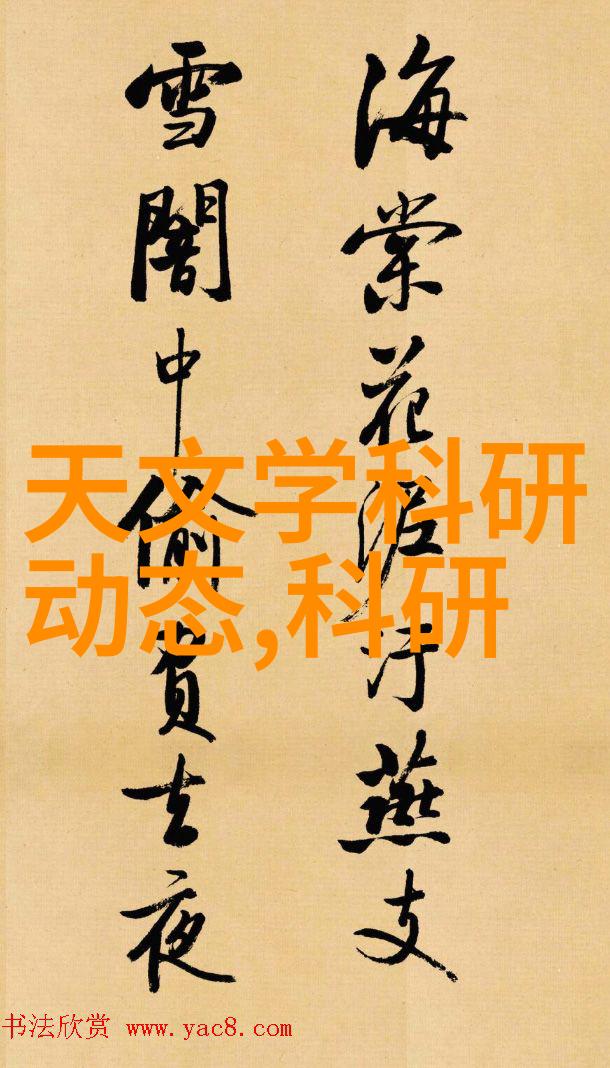 海棠花泥汙燕支
雪闇中偷負去夜
天文学科研
动态,科研
书法欣赏 www.yac8.com